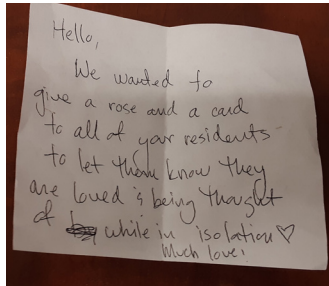 Hello,
We wanted to
give a rose and a card
to all of your residents
to let them know they
are loved & being thought
of while in isolation ♡
Much love!